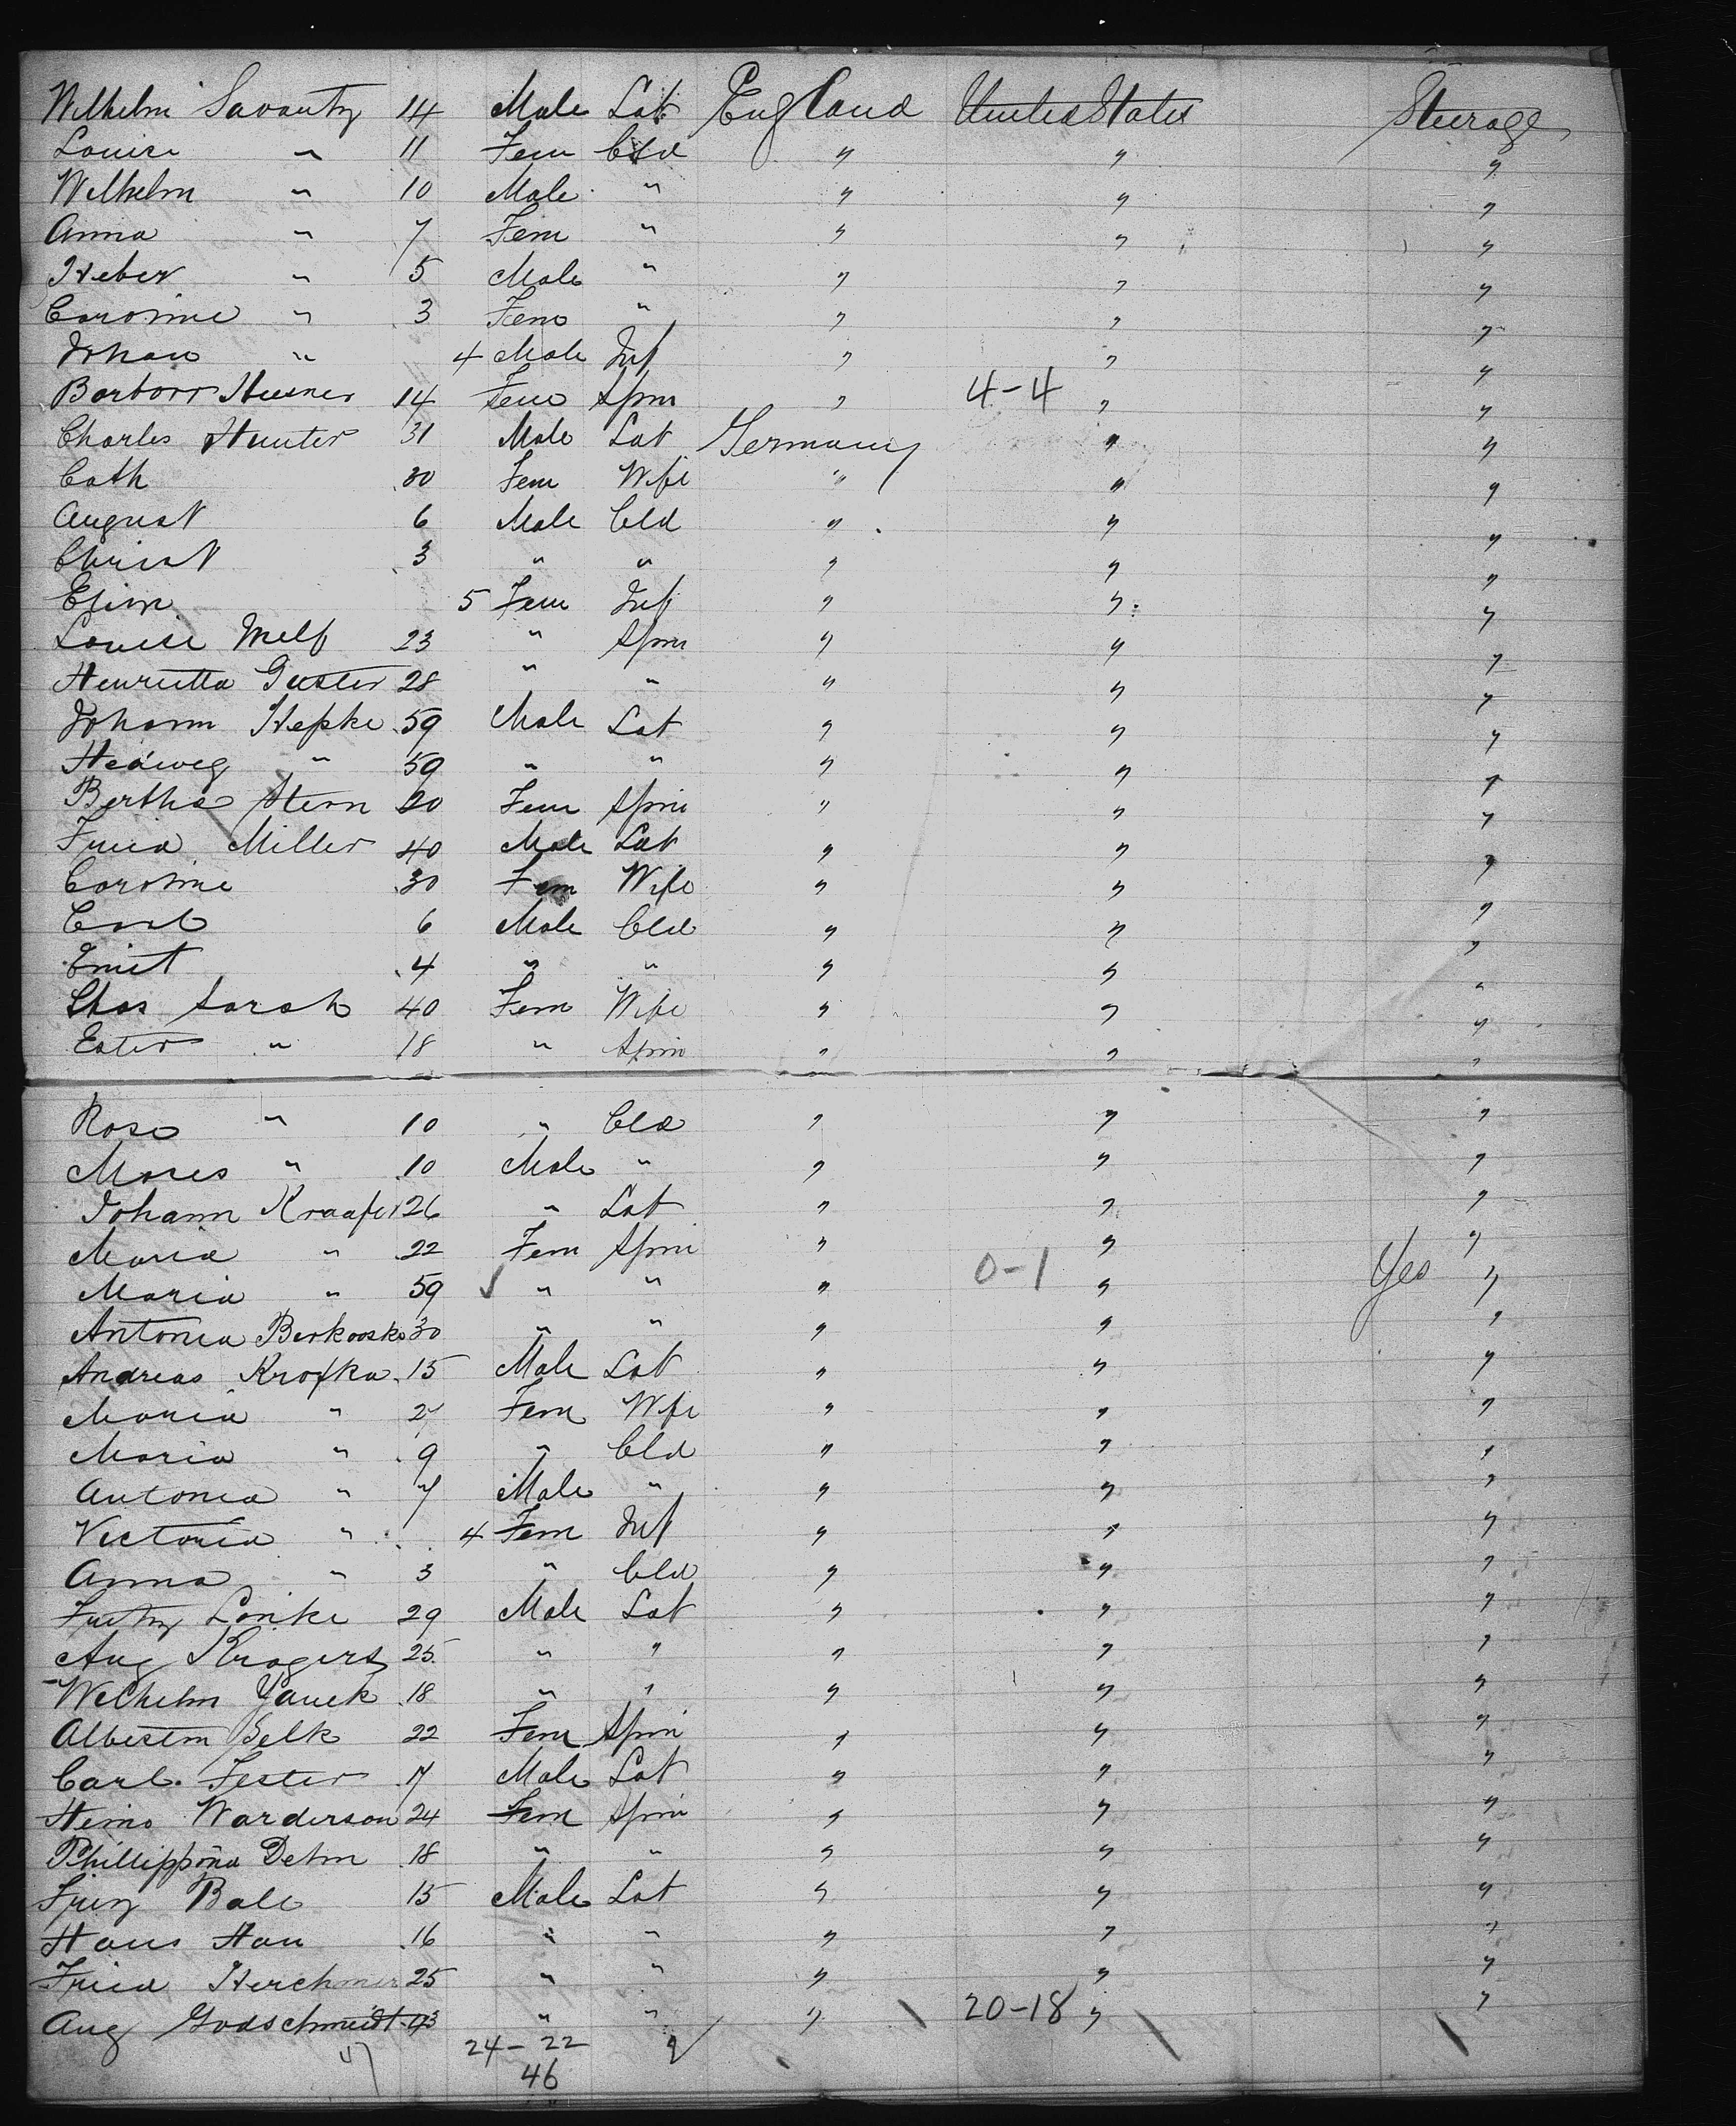 Wilhelm Savanty 14 Male Lab England United States Steerage
Louise " 11 Fem Cld " " "
Wilhelm " 10 Male " " " "
Anna " 7 Fem " " " "
Heber " 5 Male " " " "
Caroline " 3 Fem " " " "
Johan " 4 Male Inf " " "
14 Fem Spin " 4-4 " "
Charles Hunter 31 Male Lab Germany " "
Cath 30 Fem Wife " " "
August 6 Male Cld " " "
Christ 3 " " " " "
5 Fem Inf " " "
Louise Melf 23 " Spin " " "
Henrietta Guster 28 " " " " "
Johann Hepke 59 Male Lab " " "
Hedweg " 59 " " " " "
Bertha Stern 20 Fem Spin " " "
Fried Miller 40 Male Lab " " "
Caroline 30 Fem Wife " " "
Carl 6 Male Cld " " "
4 " " " " "
Chas Sarah 40 Fem Wife " " "
Ester " 18 " Spin " " "
Rosa " 10 " Cld " " "
Moses " 10 Male " " " "
Johann Kraafer 26 " Lab " " "
Maria " 22 Fem Spin " " "
Maria " 59 ✓ " " " 0-1 " Yes "
Antonia 30 " " " " "
Andreas Krofka 15 Male Lab " " "
Maria " 27 Fem Wife " " "
Maria " 9 " Cld " " "
Antonia " 7 Male " " " "
Victoria " 4 Fem Inf " " "
Anna " 3 " Cld " " "
Lonke 29 Male Lab " " "
Aug Krogers 25 " " " " "
Welhelm Yanek 18 " " " " "
Belk 22 Fem Spin " " "
Carl Fester 17 Male Lab " " "
Heino Warderson 24 Fem Spin " " "
Phillippina Dehn 18 " " " " "
Bale 15 Male Lab " " "
Hans Hau 16 " " " " "
Fried Herchmer 25 " " " " "
Aug Godschmidt 43 " " " 20-18 " "
47 24-22
46